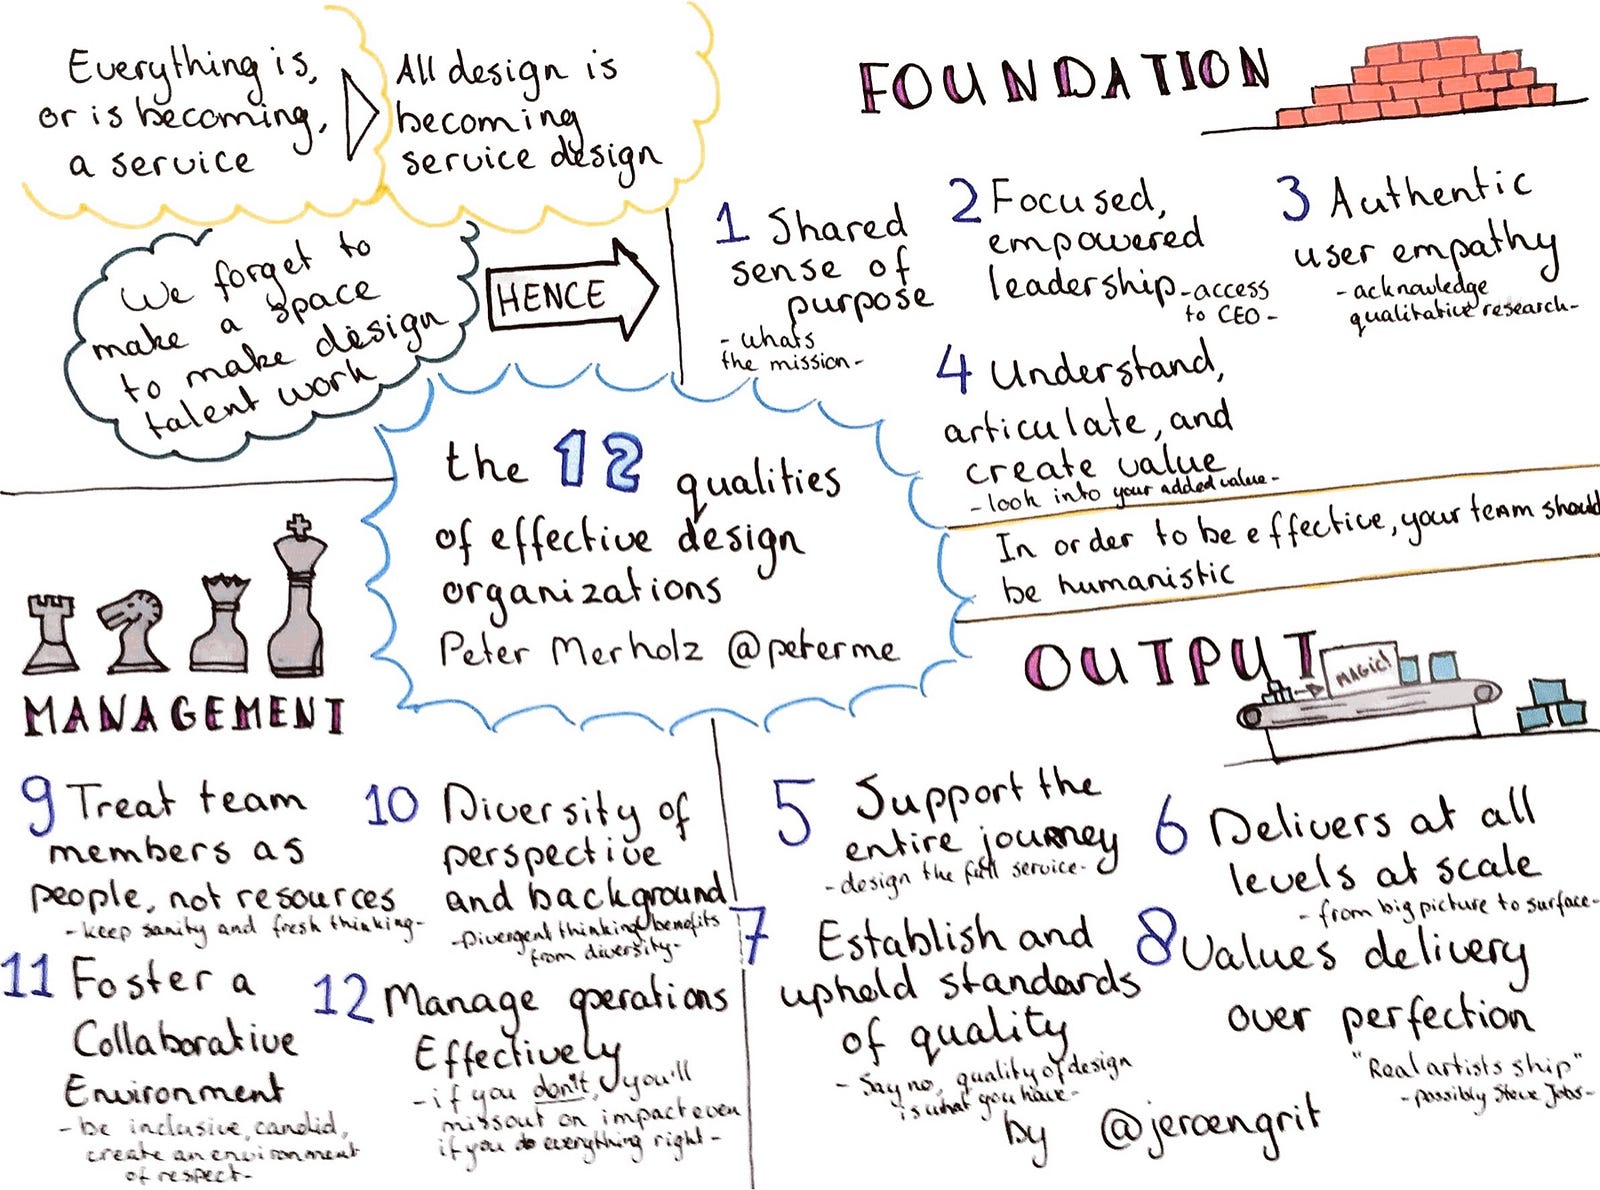 Everything is,
or is becoming,
a service
All design is
becoming
service design
We forget to
make a space
to make design
talent work
HENCE
the 12 qualities
of effective design
organizations
Peter Merholz @peterme
FOUNDATION
1 Shared
sense of
purpose
- whats
the mission -
2 Focused,
empowered
leadership - access
to CEO -
3 Authentic
user empathy
- acknowledge
qualitative research -
4 Understand,
articulate, and
create value
- look into your added value -
In order to be effective, your team should
be humanistic
OUTPUT
MAGIC!
5 Support the
entire journey
- design the full service -
6 Delivers at all
levels at scale
- from big picture to surface -
7 Establish and
uphold standards
of quality
- Say no, quality of design
is what you have -
8 Values delivery
over perfection
"Real artists ship"
- possibly Steve Jobs -
MANAGEMENT
9 Treat team
members as
people, not resources
- keep sanity and fresh thinking -
10 Diversity of
perspective
and background
- Divergent thinking benefits
from diversity -
11 Foster a
Collaborative
Environment
- be inclusive, candid,
create an environment
of respect -
12 Manage operations
Effectively
- if you don't, you'll
miss out on impact even
if you do everything right -
by @jeroengrit